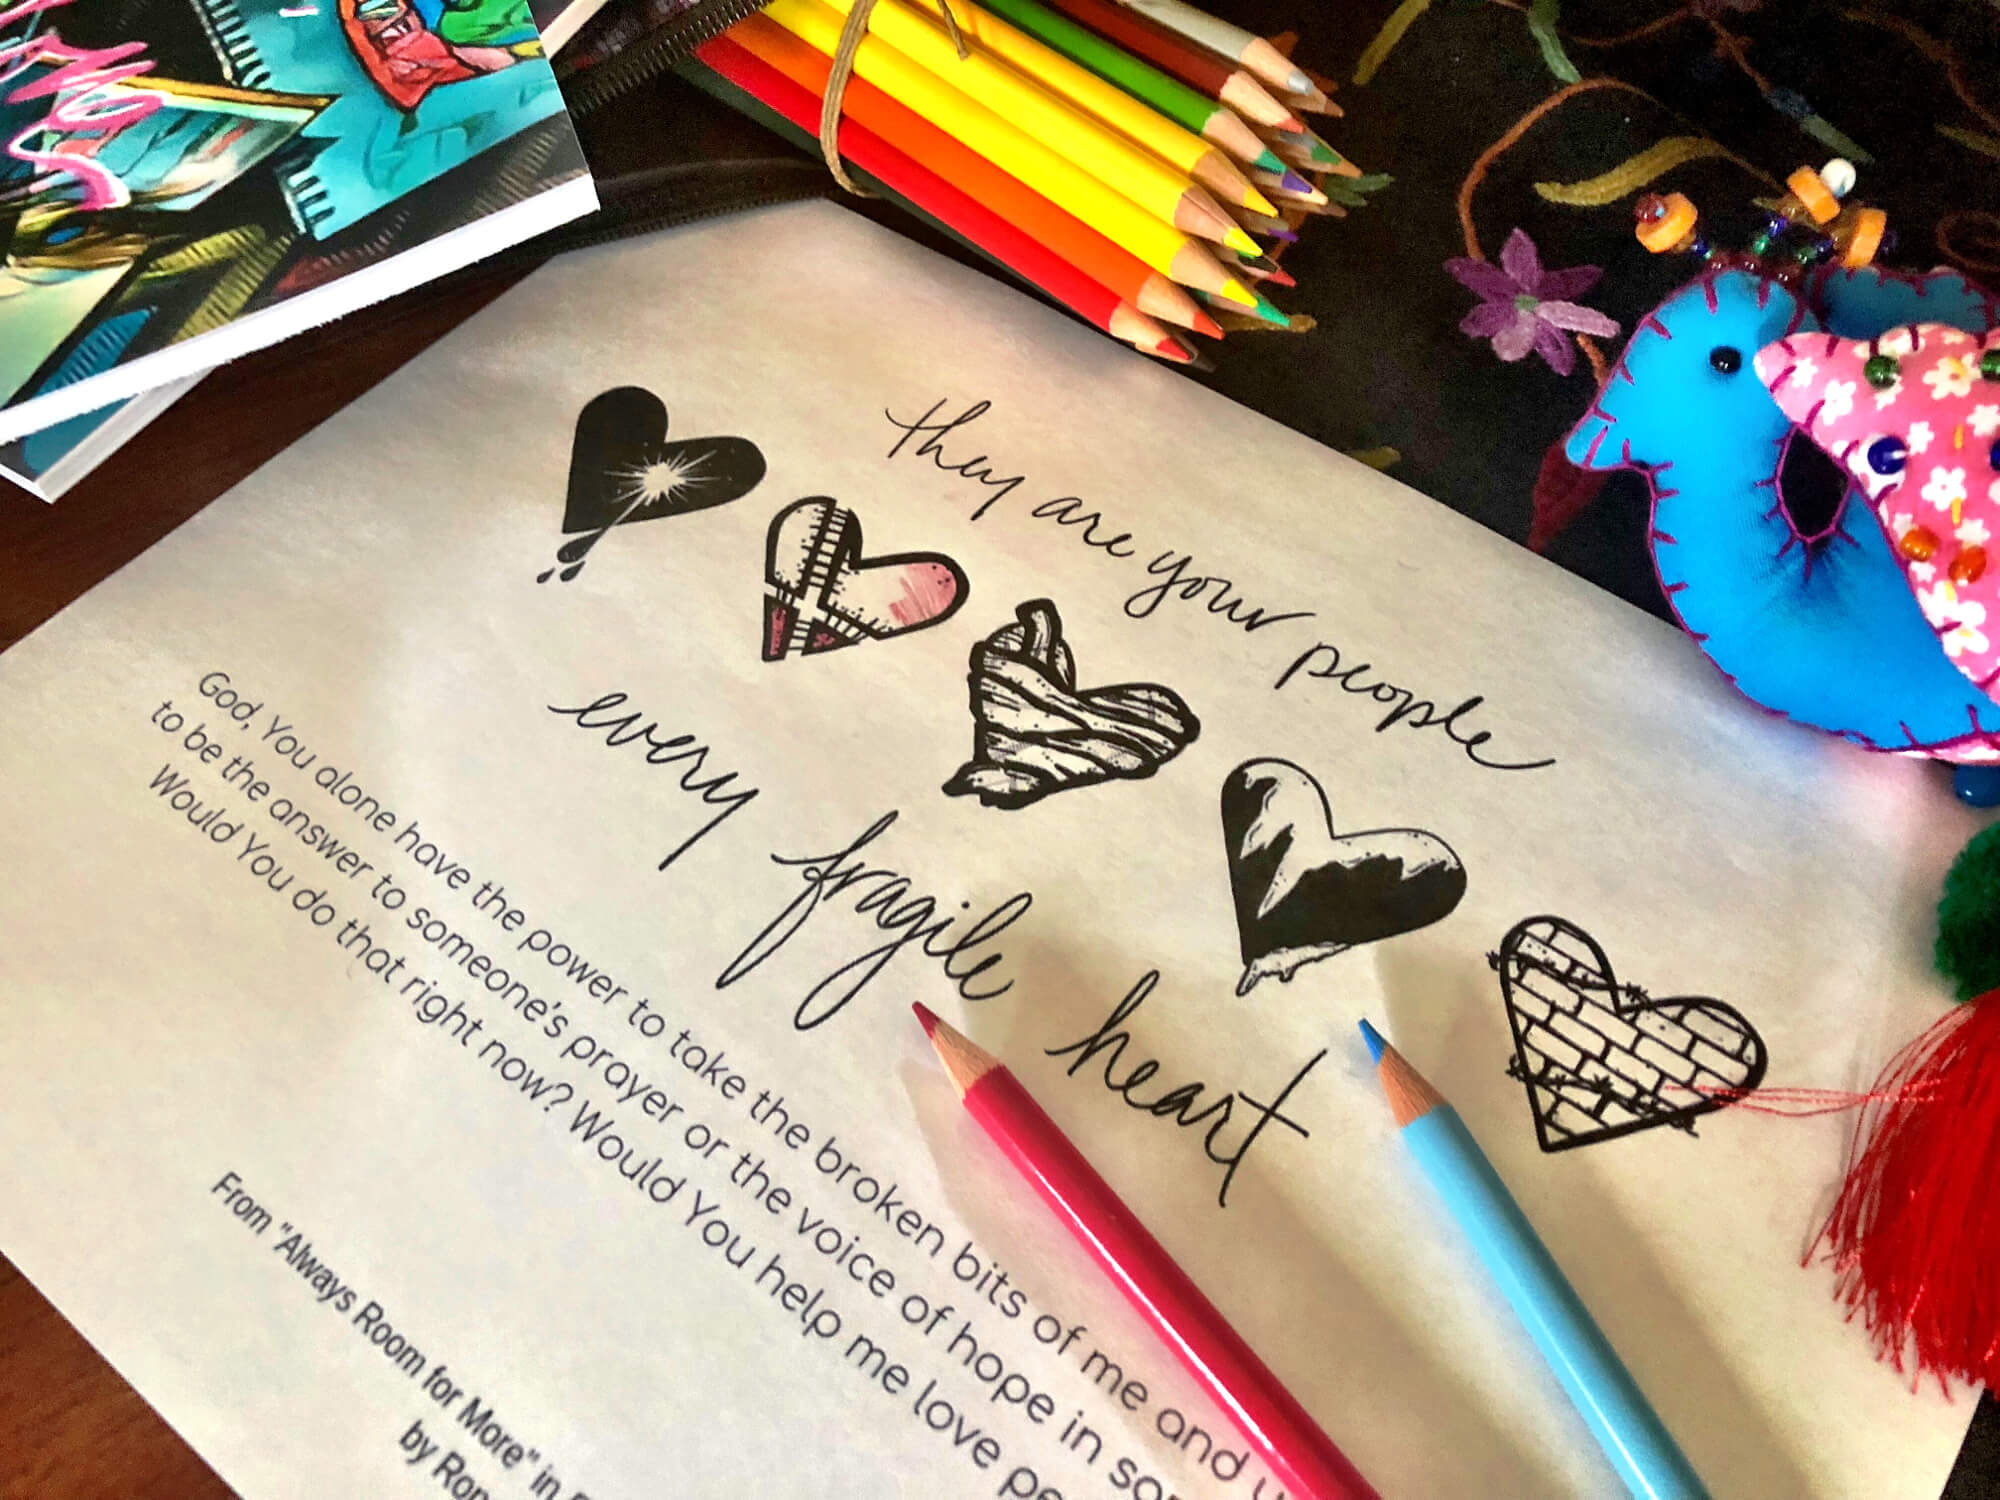 they are your people
every fragile heart
God, You alone have the power to take the broken bits of me and
to be the answer to someone's prayer or the voice of hope in
Would You do that right now? Would You help me love
From "Always Room for More" in
by